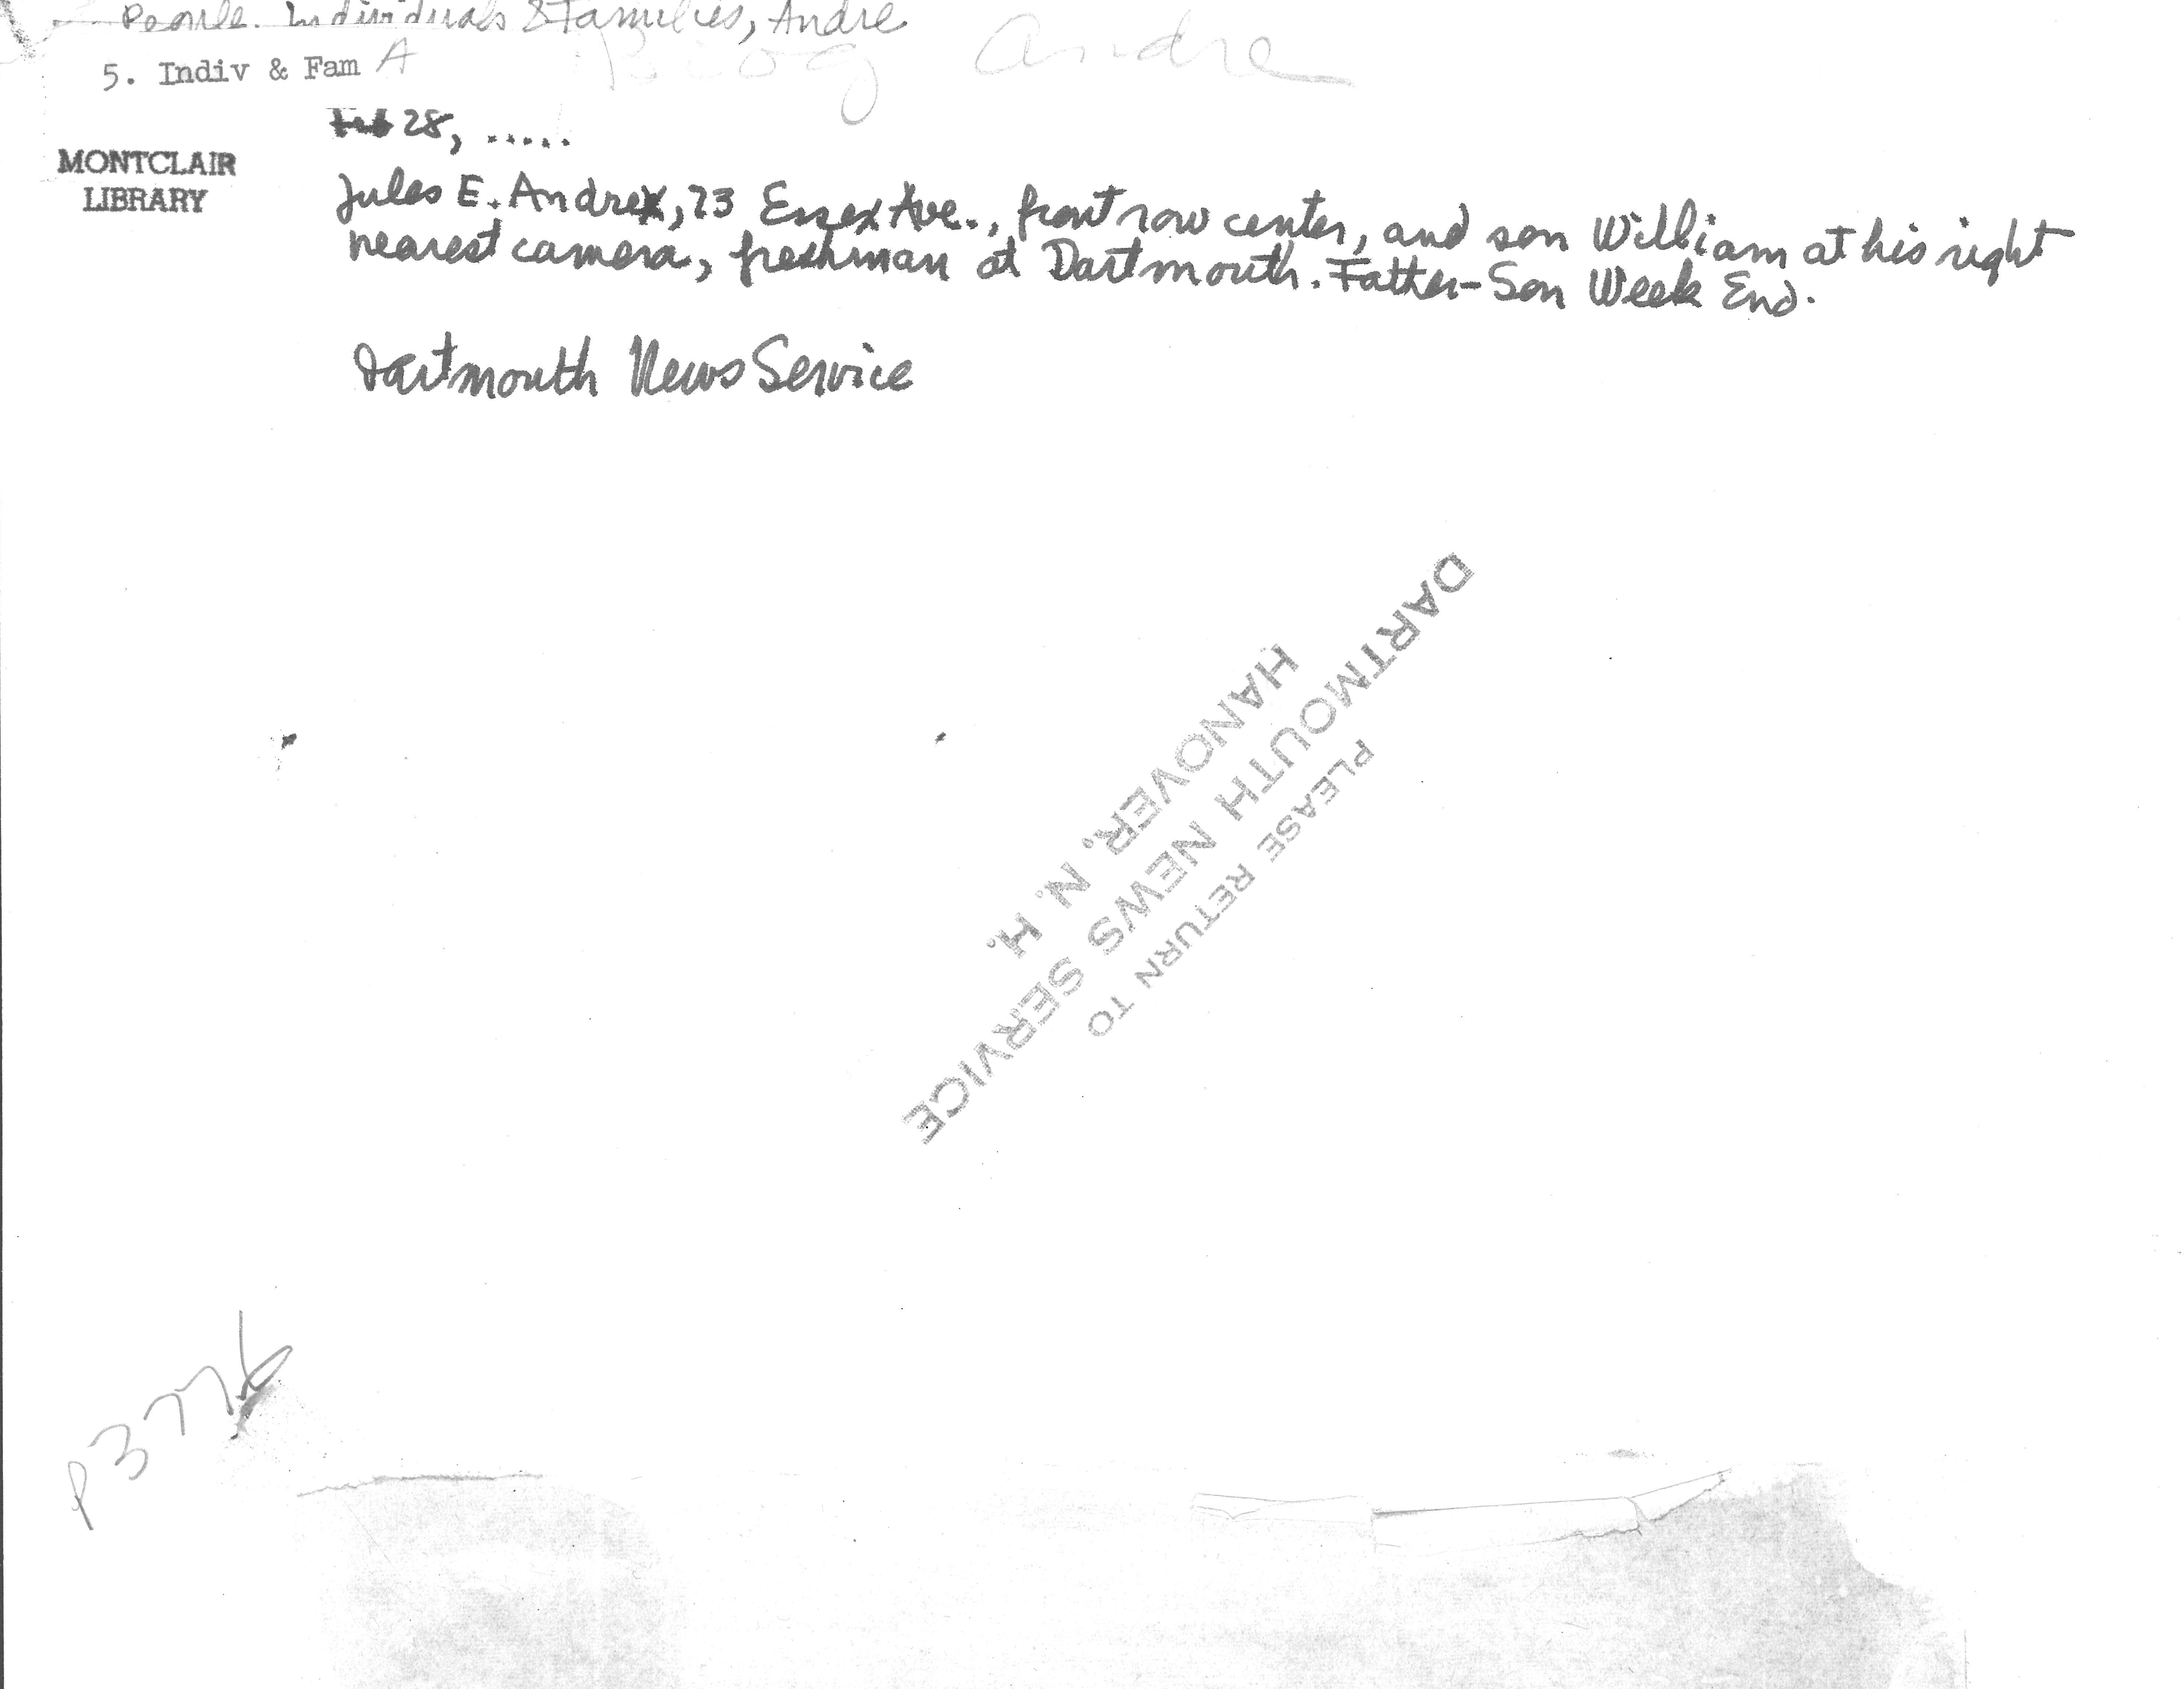 People. Individuals & Families, Andre
Biog Andre
5. Indiv & Fam A
28, .....
MONTCLAIR
LIBRARY
Jules E. Andre, 73 Essex Ave., front row center, and son William at his right
nearest camera, freshman at Dartmouth. Father-Son Week End.
Dartmouth News Service
PLEASE RETURN TO
DARTMOUTH NEWS SERVICE
HANOVER, N. H.
P3776